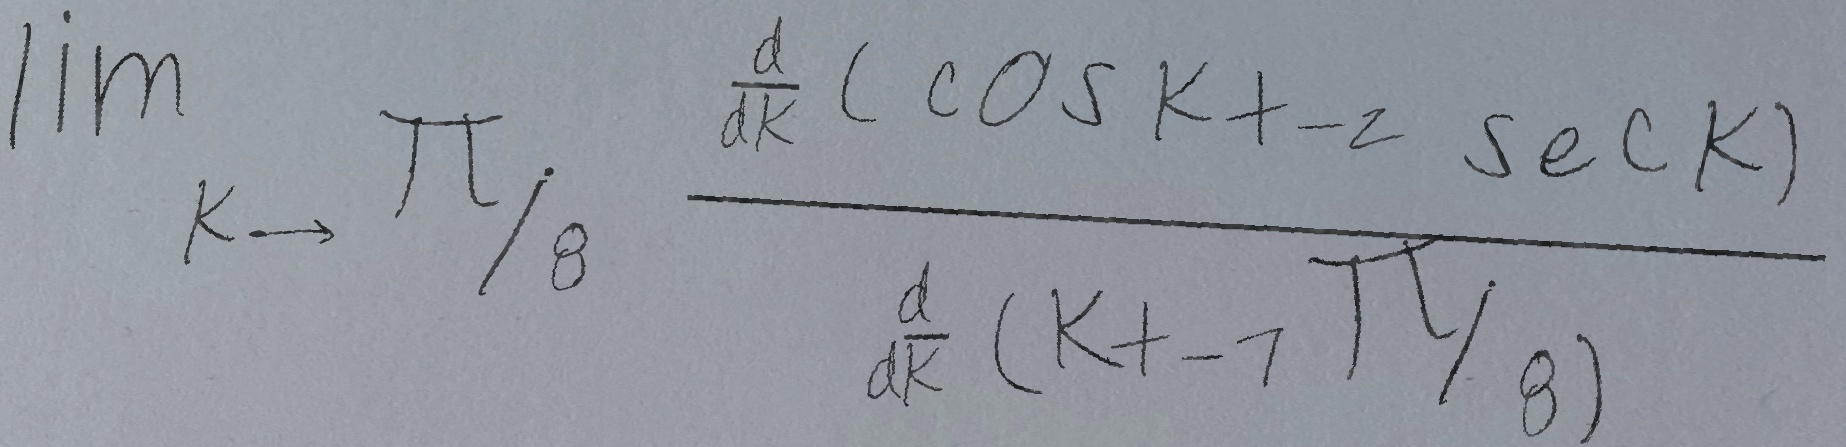 lim K→π/8 \frac{\frac{d}{dK}(cos K + -2 sec K)}{\frac{d}{dK}(K + -7 π/8)}